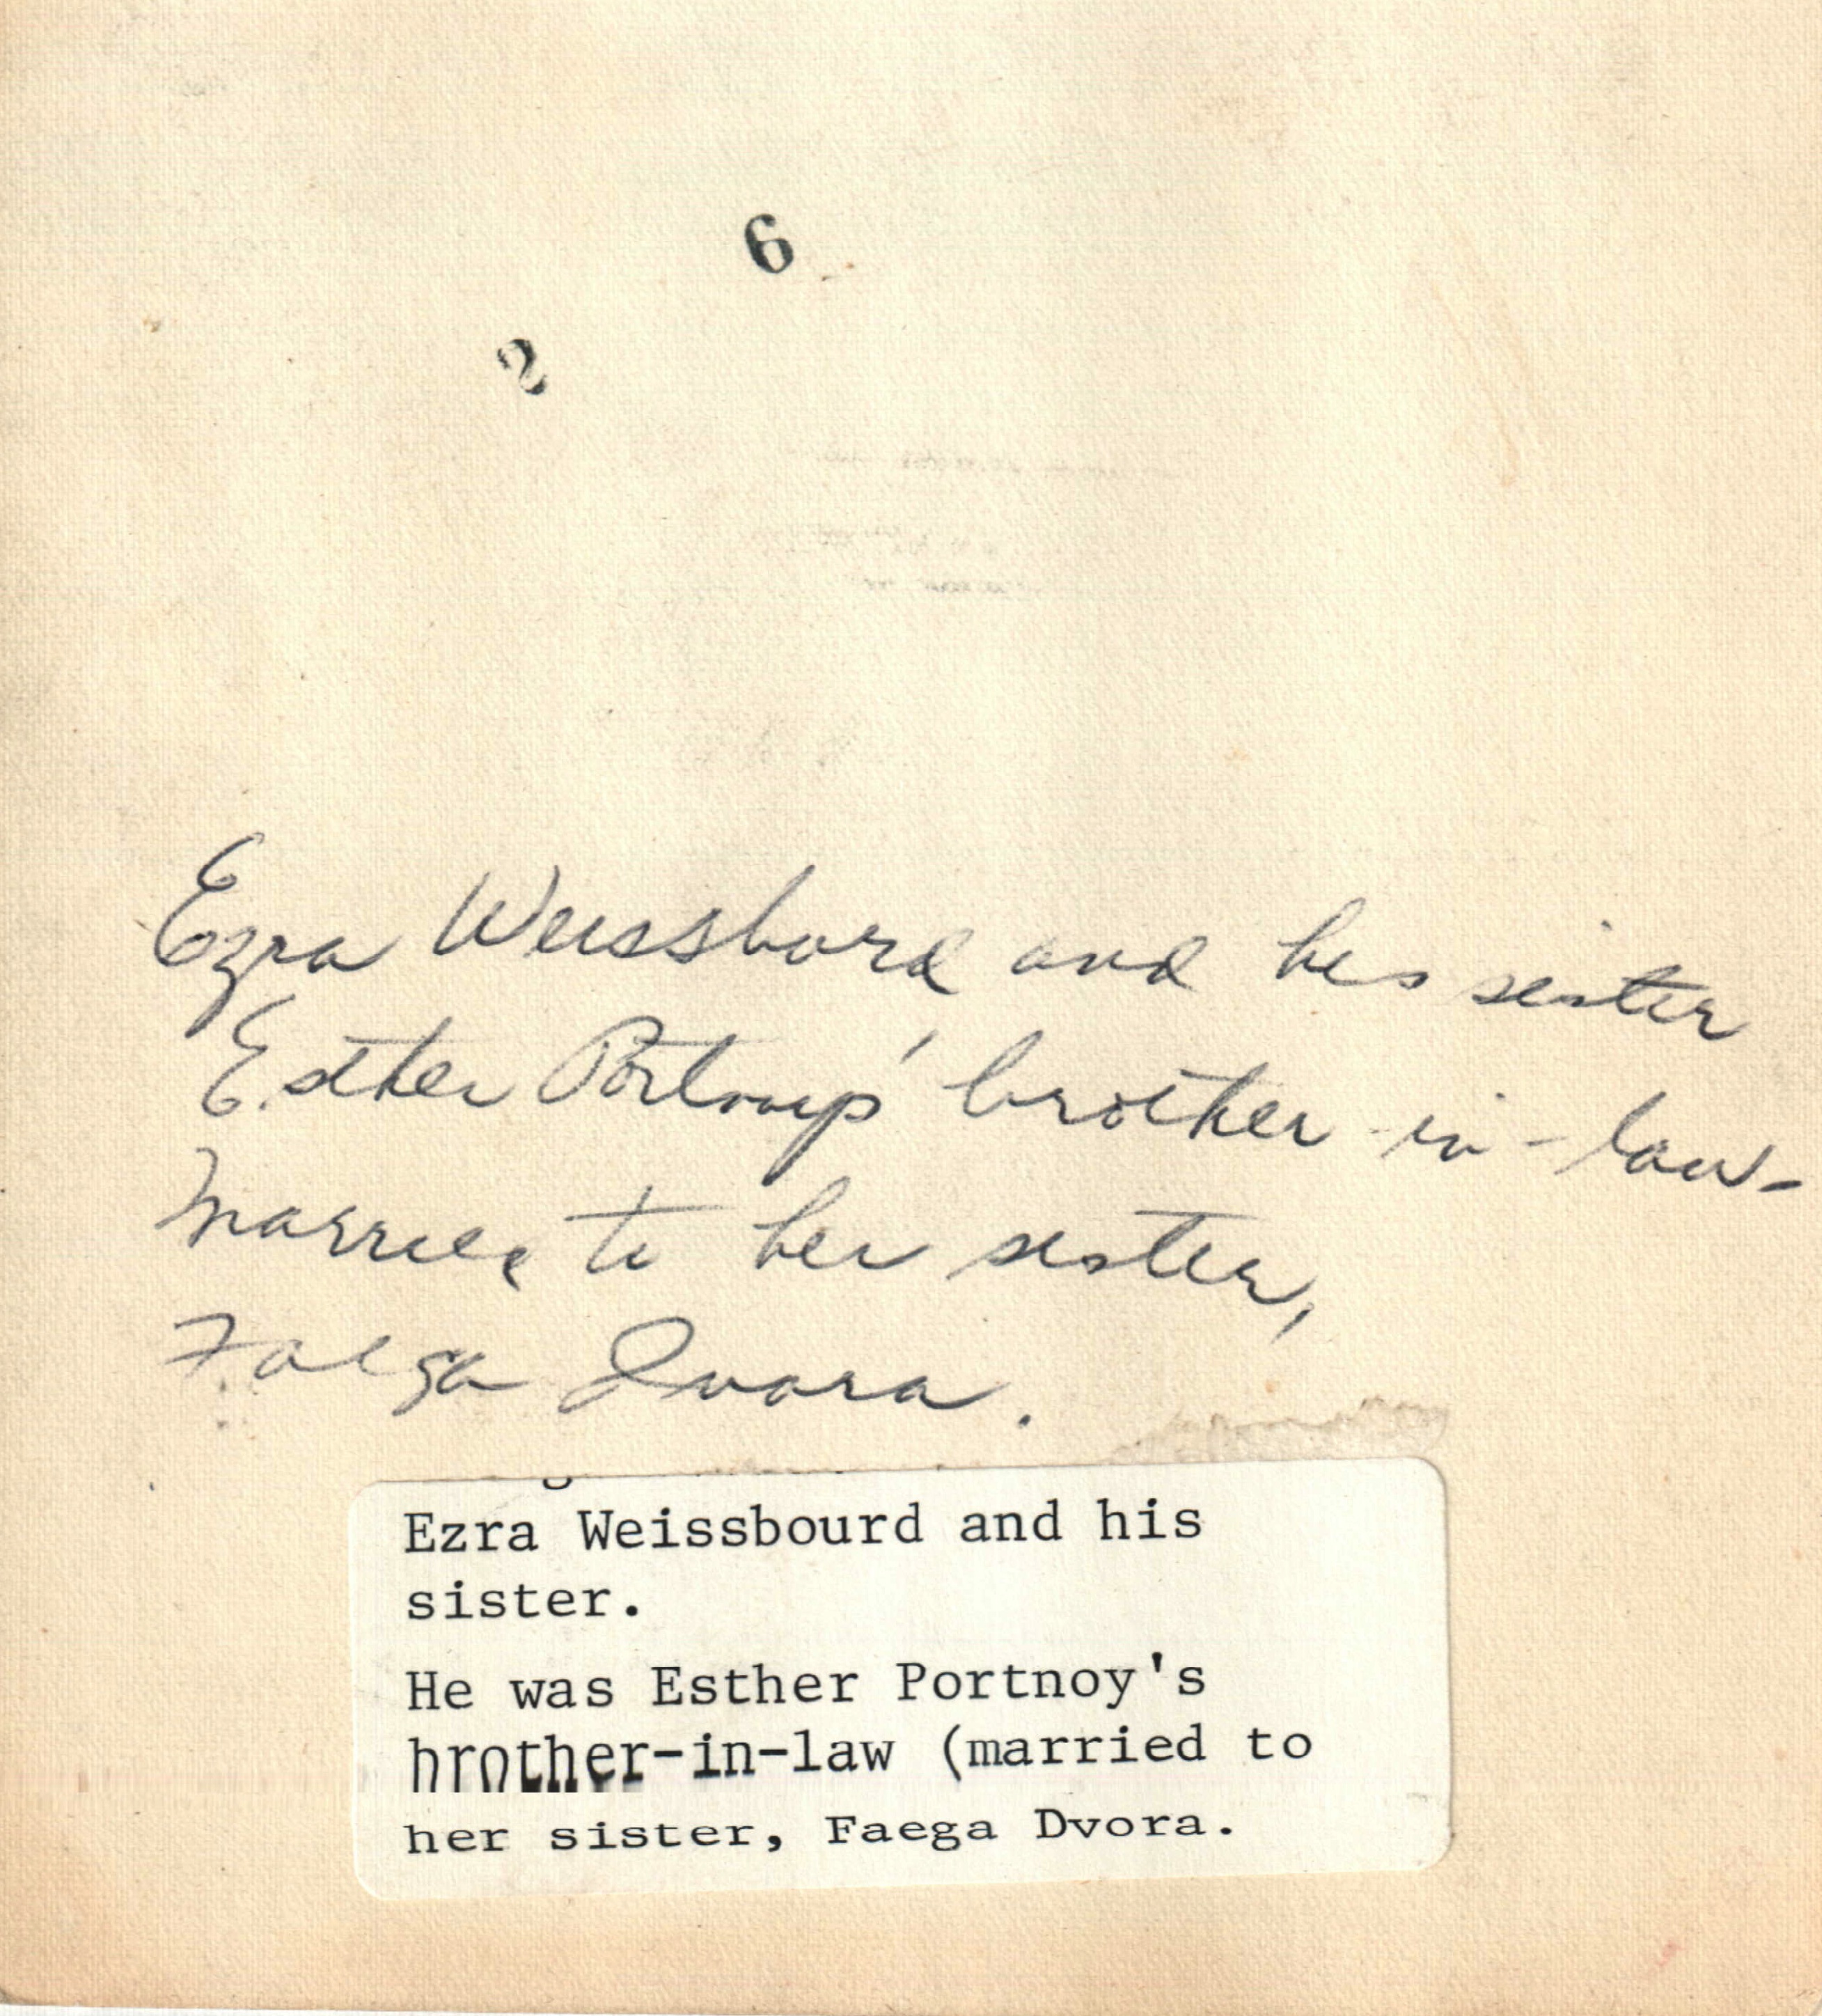 6
2
Ezra Weissbord and his sister
Esther Portnoy' brother-in-law-
married to her sister,
Faega Dvora.
Ezra Weissbourd and his
sister.
He was Esther Portnoy's
brother-in-law (married to
her sister, Faega Dvora.